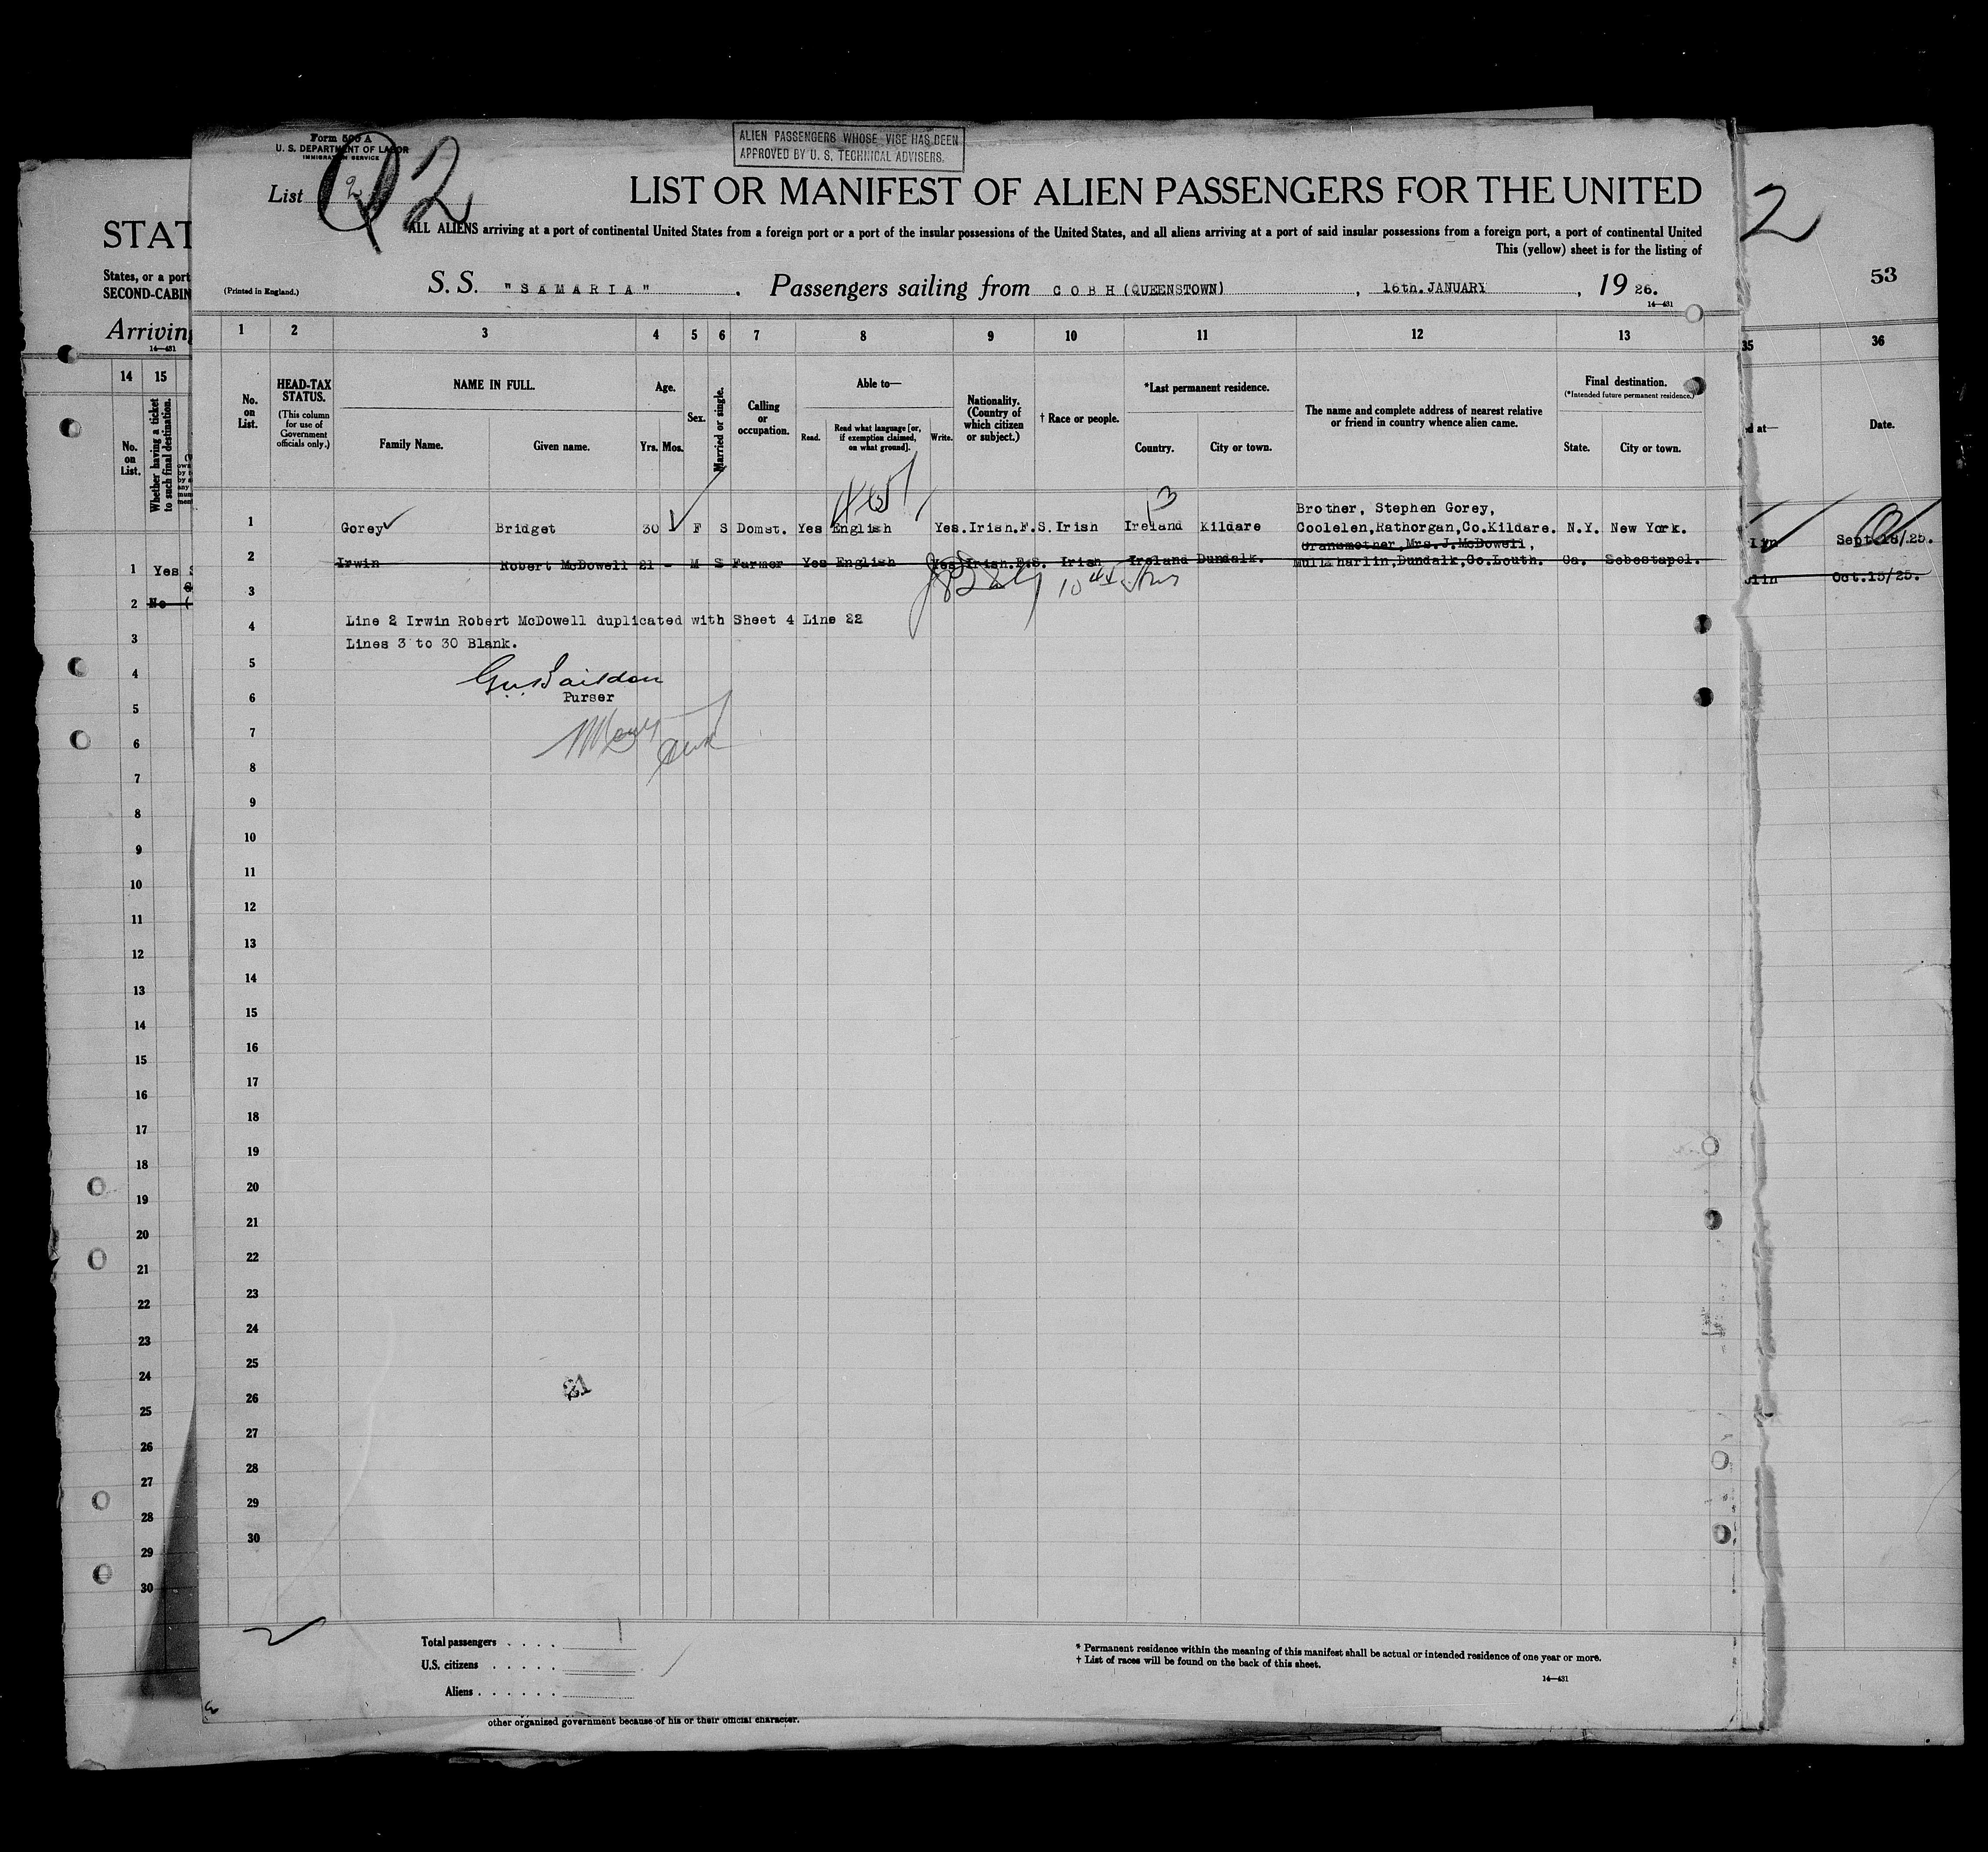 Form 500 A
U. S. DEPARTMENT OF LABOR
IMMIGRATION SERVICE
ALIEN PASSENGERS WHOSE VISE HAS BEEN
APPROVED BY U. S. TECHNICAL ADVISERS.
List 2
2
LIST OR MANIFEST OF ALIEN PASSENGERS FOR THE UNITED
ALL ALIENS arriving at a port of continental United States from a foreign port or a port of the insular possessions of the United States, and all aliens arriving at a port of said insular possessions from a foreign port, a port of continental United
This (yellow) sheet is for the listing of
(Printed in England.)
S. S. "SAMARIA" . Passengers sailing from COBH (QUEENSTOWN) , 16th. JANUARY , 19 26.
14—431
1 2 3 4 5 6 7 8 9 10 11 12 13
No. on List.
HEAD-TAX STATUS.
(This column for use of Government officials only.)
NAME IN FULL.
Family Name. Given name.
Age.
Yrs. Mos.
Sex.
Married or single.
Calling or occupation.
Able to—
Read. Read what language [or, if exemption claimed, on what ground]. Write.
Nationality. (Country of which citizen or subject.)
† Race or people.
*Last permanent residence.
Country. City or town.
The name and complete address of nearest relative or friend in country whence alien came.
Final destination.
(*Intended future permanent residence.)
State. City or town.
Brother, Stephen Gorey,
1 Gorey Bridget 30 F S Domst. Yes English Yes. Irish.F.S. Irish Ireland Kildare Coolelen,Rathorgan,Co.Kildare. N.Y. New York.
Grandmother, Mrs. J. McDowell,
2 Irwin Robert McDowell 21 - M S Farmer Yes English Yes Irish.F.S. Irish Ireland Dundalk. Mullaharlin,Dundalk,Co.Louth. Ca. Sebostapol.
3
4 Line 2 Irwin Robert McDowell duplicated with Sheet 4 Line 22
Lines 3 to 30 Blank.
5
6 Purser
7
8
9
10
11
12
13
14
15
16
17
18
19
20
21
22
23
24
25
26
27
28
29
30
Total passengers . . . . 1
U.S. citizens . . . . .
Aliens . . . . . .
* Permanent residence within the meaning of this manifest shall be actual or intended residence of one year or more.
† List of races will be found on the back of this sheet.
14—431
other organized government because of his or their official character.
STAT
States, or a port
SECOND-CABIN
Arriving
14—431
14 15
No. on List.
Whether having a ticket to such final destination.
1 Yes
2 No
3
4
5
6
7
8
9
10
11
12
13
14
15
16
17
18
19
20
21
22
23
24
25
26
27
28
29
30
2
53
35 36
Date.
Sept.18/25.
Oct.15/25.